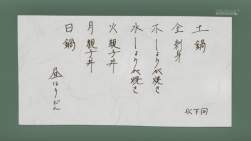 土 鍋
金 刺身
木 しょうが焼き
水 しょうが焼き
火 親子丼
月 親子丼
日 鍋
昼はうどん
以下同